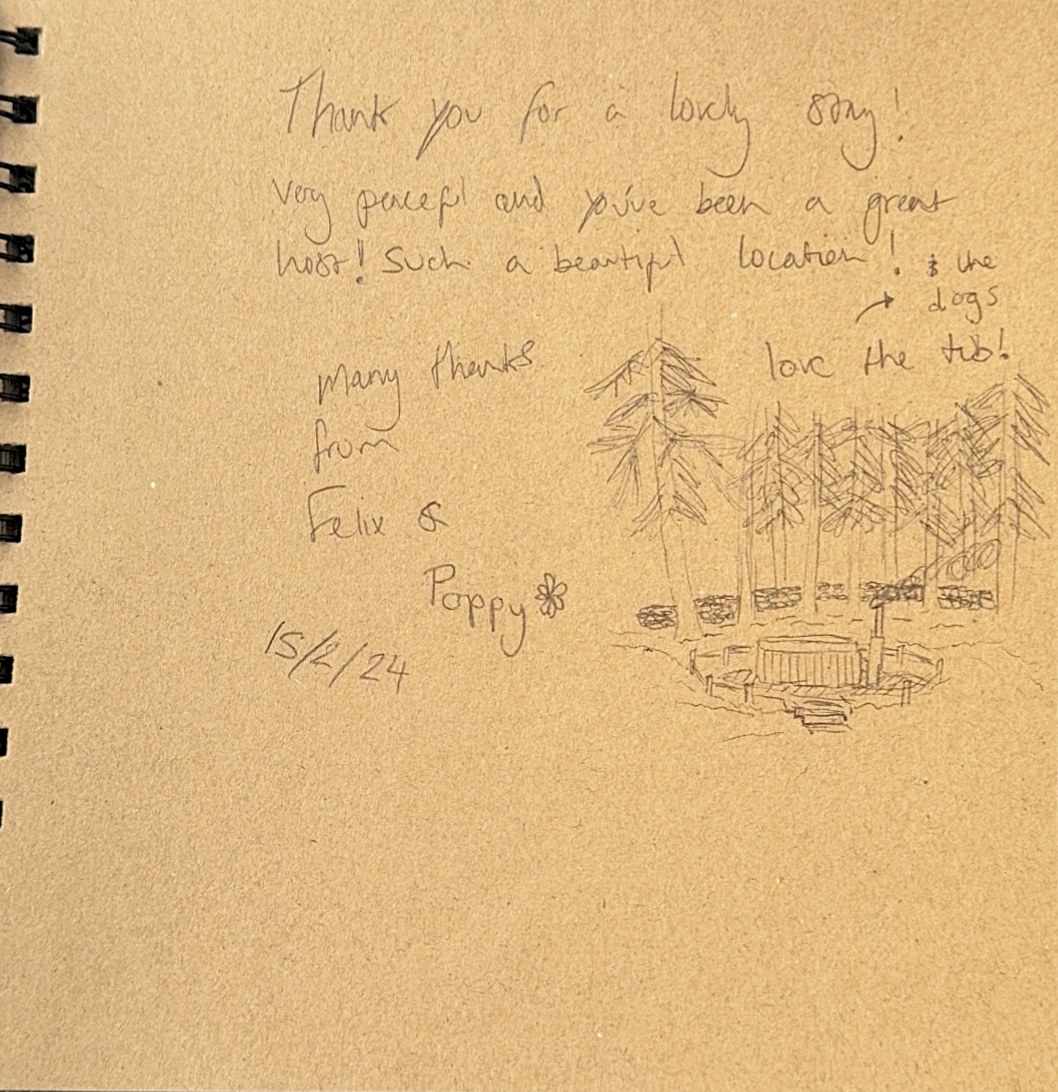 Thank you for a lovely stay!
Very peaceful and you've been a great
host! Such a beautiful location!
& the
dogs
love the tub!
Many thanks
from
Felix &
Poppy
15/2/24